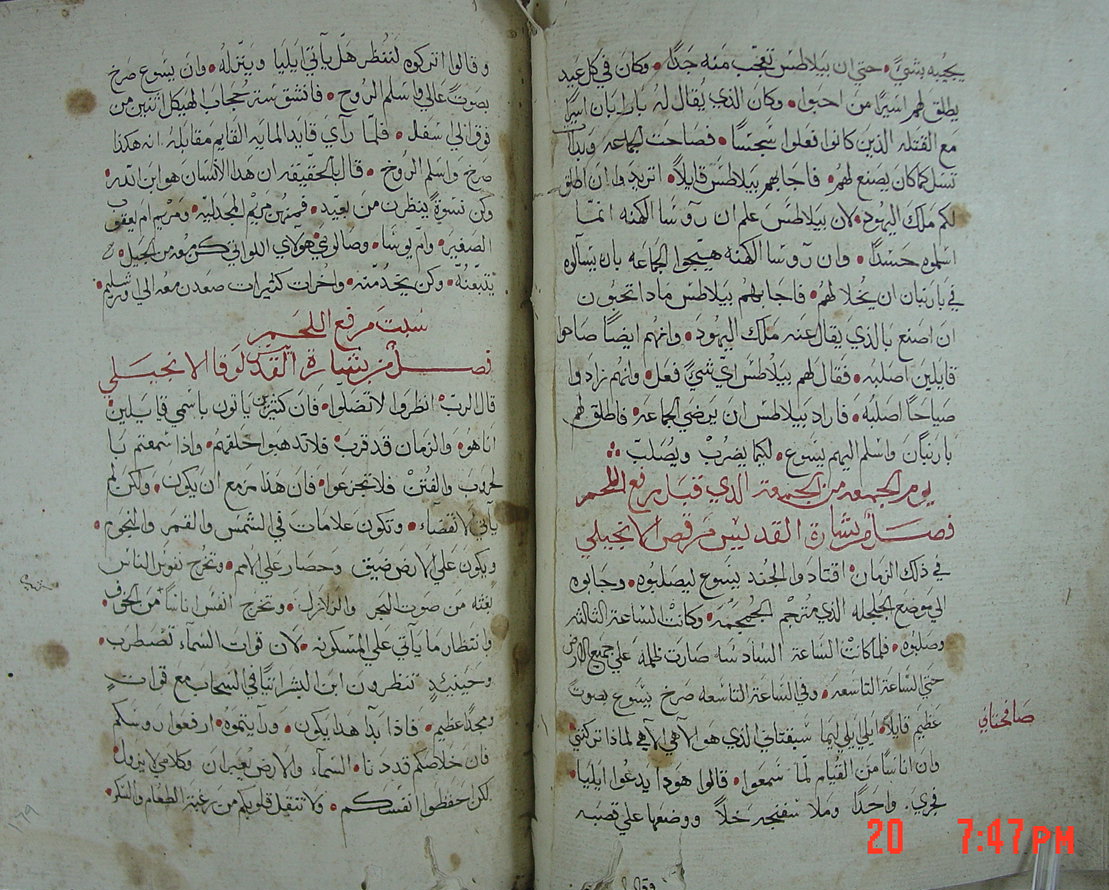 يجيبه بشيٍ • حتي ان بيلاطس تعجّب منه جدًا • وكان في كل عيد
يطلق لهم اسيرًا من احبوا • وكان الذي يقال له بارابان اسيرًا
مع القتله الذين كانوا فعلوا سجسًا • فصاحت الجماعه وبدأت
تسل كما كان يصنع لهم • فاجابهم بيلاطس قايلاً • اتريدوا ان اطلق
لكم ملك اليهود • لان بيلاطس علم ان روسا الكهنه انما
اسلموه حسدًا • وان روسا الكهنه هيجوا الجماعه بان يسألوه
في باربان ان يخلا لهم • فاجابهم بيلاطس ماذا تحبون
ان اصنع بالذي يقال عنه ملك اليهود • وانهم ايضًا صاحوا
قايلين اصلبه • فقال لهم بيلاطس اي شيٍ فعل • وانهم زادوا
صياحًا اصلبه • فاراد بيلاطس ان يرضي الجماعه • فاطلق لهم
باربان واسلم اليهم يسوع • لكيما يضرب ويصلب
يوم الجمعه من الجمعة الذي قبل مرفع اللحم
فصل من بشارة القديس مرقص الانجيلي
في ذلك الزمان • اقتادوا الجند يسوع ليصلبوه • وجابوه
الي موضع الجلجله الذي مترجم الجمجمه • وكانت الساعة الثالثه
وصلبوه • فلما كانت الساعة السادسه صارت ظلمه علي جميع الارض
حتي الساعة التاسعه • وفي الساعة التاسعه صرخ يسوع بصوت
عظيم قايلاً • ايلي ايلي ليما سبقتاني الذي هو الاهي الاهي لماذا تركتني
صافحتاني
وان اناسًا من القيام لما سمعوا • قالوا هوذا يدعوا ايليا •
فجري واحدًا وملا سفنجه خلاً ووضعها علي قصبه
وقالوا اتركوه لننظر هل يأتي ايليا وينزله • وان يسوع صرخ
بصوت عالي واسلم الروح • فانشق ستر حجاب الهيكل اثنين من
فوق الي اسفل • فلما رأي قايد المايه القايم مقابله انه هكذا
صرخ واسلم الروح • قال بالحقيقه ان هذا الانسان هو ابن الله •
وكن نسوة ينظرن من بعيد • فمنهن مريم المجدليه • ومريم ام يعقوب
الصغير • وام يوسا • وصالومي هولاي اللواتي كن معه من الجليل
يتبعنه • وكن يخدمنه • واخرات كثيرات صعدن معه الي اورشليم •
سبت مرفع اللحم
فصل من بشارة القديس لوقا الانجيلي
قال الرب • انظروا لا تضلوا • فان كثيرين ياتون باسمي قايلين
انا هو • والزمان قد قرب • فلا تذهبوا خلفهم • واذا سمعتم با
لحروب والفتن فلا تجزعوا • فان هذا مزمع ان يكون • ولكن لم
ياتي الانقضاء • وتكون علامات في الشمس والقمر والنجوم •
ويكون علي الارض ضيق وحصار علي الامم • وتخرج نفوس الناس
بغته من صوت البحر والزلازل • وتخرج انفس اناسًا من الخوف
وانتظار ما يأتي علي المسكونه • لان قوات السماء تضطرب •
وحينيذٍ تنظرون ابن البشر اتيًا في السحاب مع قوات
ومجد عظيم • فاذا بدا هذا يكون • ورايتموه ارفعوا روسكم
فان خلاصكم قد دنا • السماء والارض يعبران وكلامي لا يزول •
لكن احفظوا انفسكم • ولا تثقل قلوبكم من رغبة الطعام والسكر •
١٢٩
20 7:47 PM